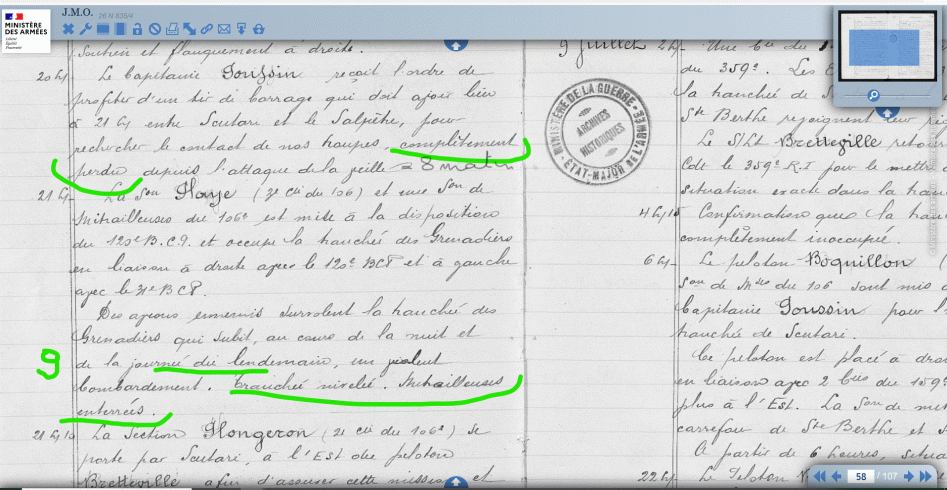 MINISTÈRE
DES ARMÉES
Liberté
Égalité
Fraternité
J.M.O. 26 N 835/4
soutien et flanquement à droite.
20h Le Capitaine Goussin reçoit l'ordre de
profiter d'un tir de barrage qui doit avoir lieu
à 21h entre Scutari et le Salpêtre, pour
rechercher le contact de nos troupes, complètement
perdu depuis l'attaque de la veille = 8 matin
21h La Son (2e Cie du 106) et une Son de
Mitrailleuses du 106e est mise à la disposition
du 120e B.C.P. et occupe la tranchée des Grenadiers
en liaison à droite avec le 120e BCP et à gauche
avec le BCP.
Des avions ennemis survolent la tranchée des
Grenadiers qui subit, au cours de la nuit et
9 de la journée du lendemain, un violent
bombardement. Tranchée nivelée. Mitrailleuses
enterrées.
21h10 La Section Flongeron (2e Cie du 106e) se
porte par Scutari, à l'Est du peloton
Bretteville afin d'assurer cette mission et
MINISTÈRE DE LA GUERRE
ARCHIVES
HISTORIQUES
ÉTAT-MAJOR DE L'ARMÉE
9 Juillet 2h Une Cie du
du 359e. Les
la tranchée de
Ste Berthe rejoignent leur
Le S/Lt Bretteville retour
Cdt le 359e R.I pour le mettre
situation exacte dans la
4h15 Confirmation que la
complètement inoccupée.
6h Le peloton Boquillon (
Son de Mses du 106 sont mis
Capitaine Goussin pour
tranchée de Scutari.
Ce peloton est placé à
en liaison avec 2 Cies du 159e
plus à l'Est. La Son de
carrefour de Ste Berthe et
A partir de 6 heures,
22h Le Peloton
58 / 107